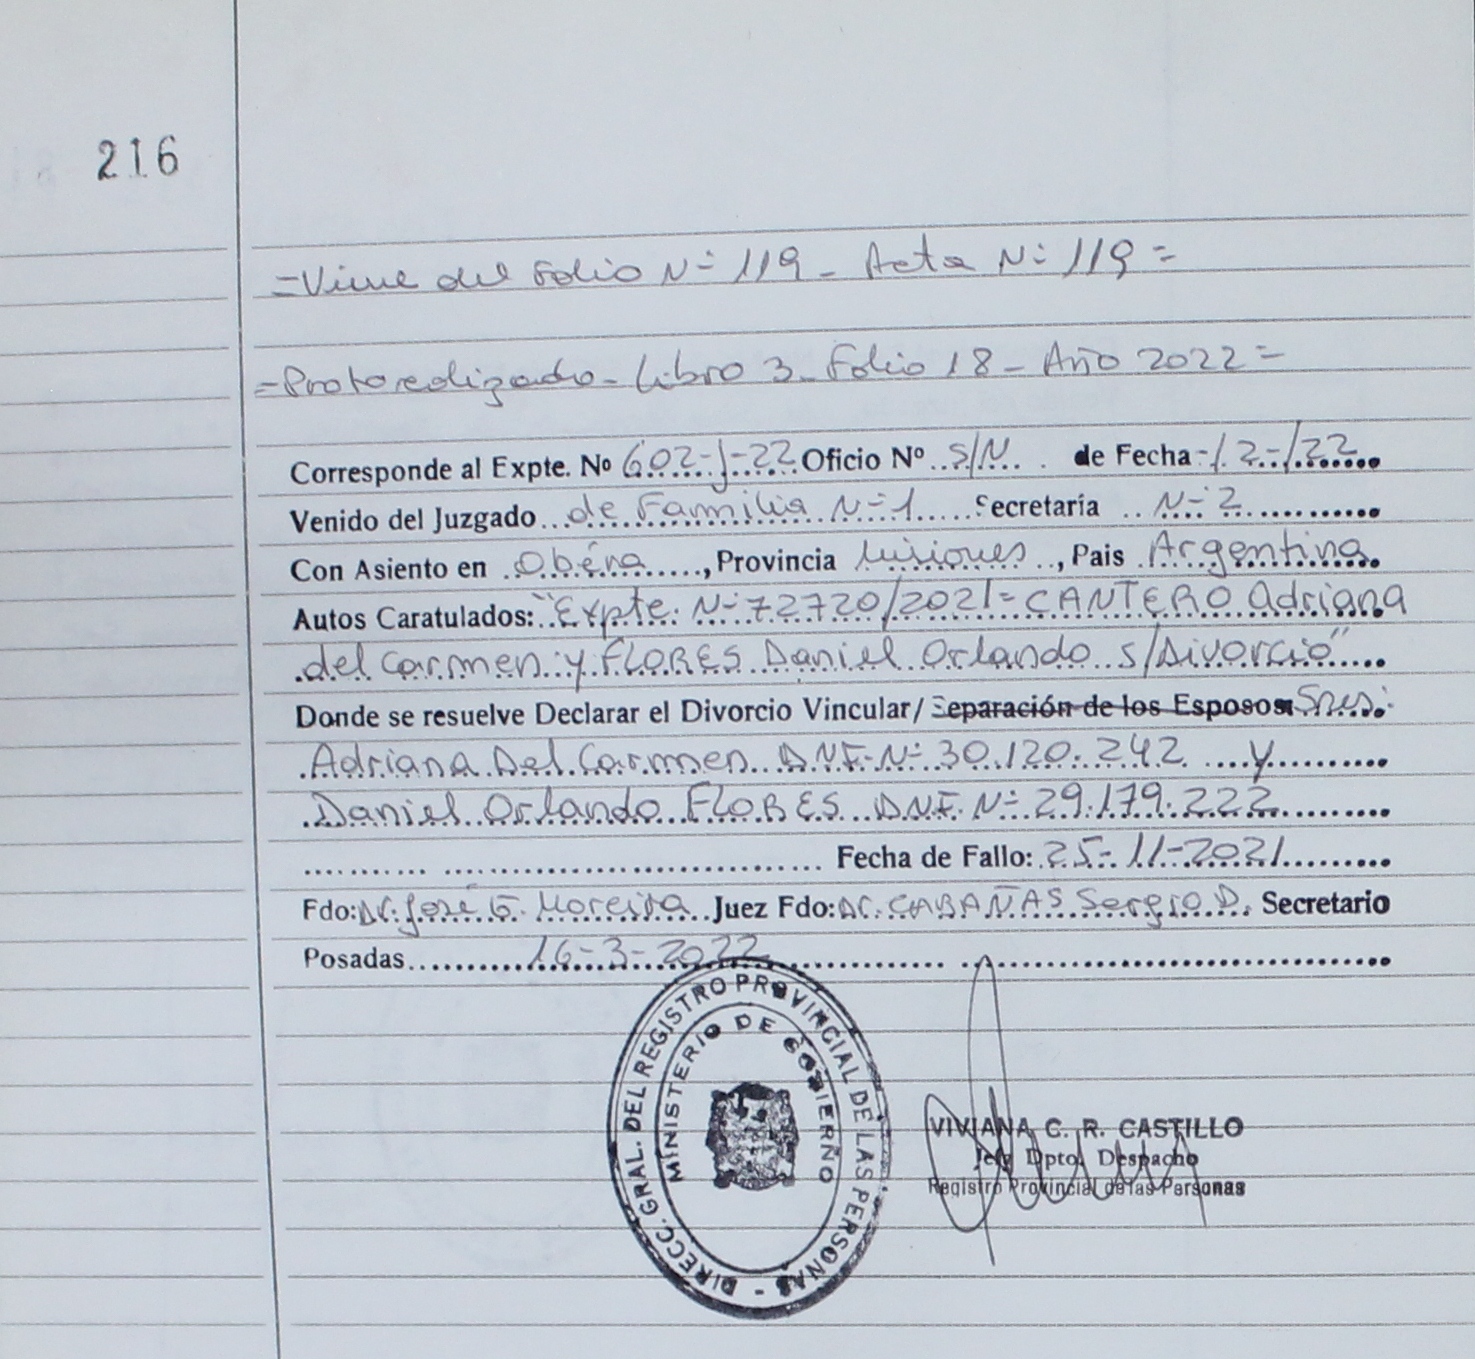 216
=Viene del Folio Nº 119 - Acta Nº 119=
=Protocolizado - Libro 3 - Folio 18 - Año 2022=
Corresponde al Expte. Nº 602-J-22 Oficio Nº S/N de Fecha -/2-/22
Venido del Juzgado de Familia Nº 1 Secretaría Nº 2
Con Asiento en Oberá, Provincia Misiones, Pais Argentina.
Autos Caratulados: "Expte. Nº 72720/2021=CANTERO Adriana
del Carmen y FLORES Daniel Orlando s/Divorcio"
Donde se resuelve Declarar el Divorcio Vincular/ Separación de los Esposos Sres:
Adriana Del Carmen D.N.I. Nº 30.120.242 y
Daniel Orlando FLORES D.N.I. Nº 29.179.222
Fecha de Fallo: 25-11-2021
Fdo: Dr. José G. Moreira Juez Fdo: Dr. CABAÑAS Sergio D. Secretario
Posadas 16-3-2022
DIRECC. GRAL. DEL REGISTRO PROVINCIAL DE LAS PERSONAS -
MINISTERIO DE GOBIERNO
VIVIANA C. R. CASTILLO
Jefa Dpto. Despacho
Registro Provincial de las Personas